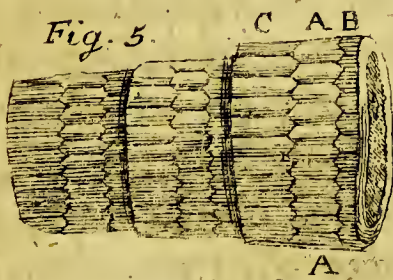 Fig. 5.
C A B
A